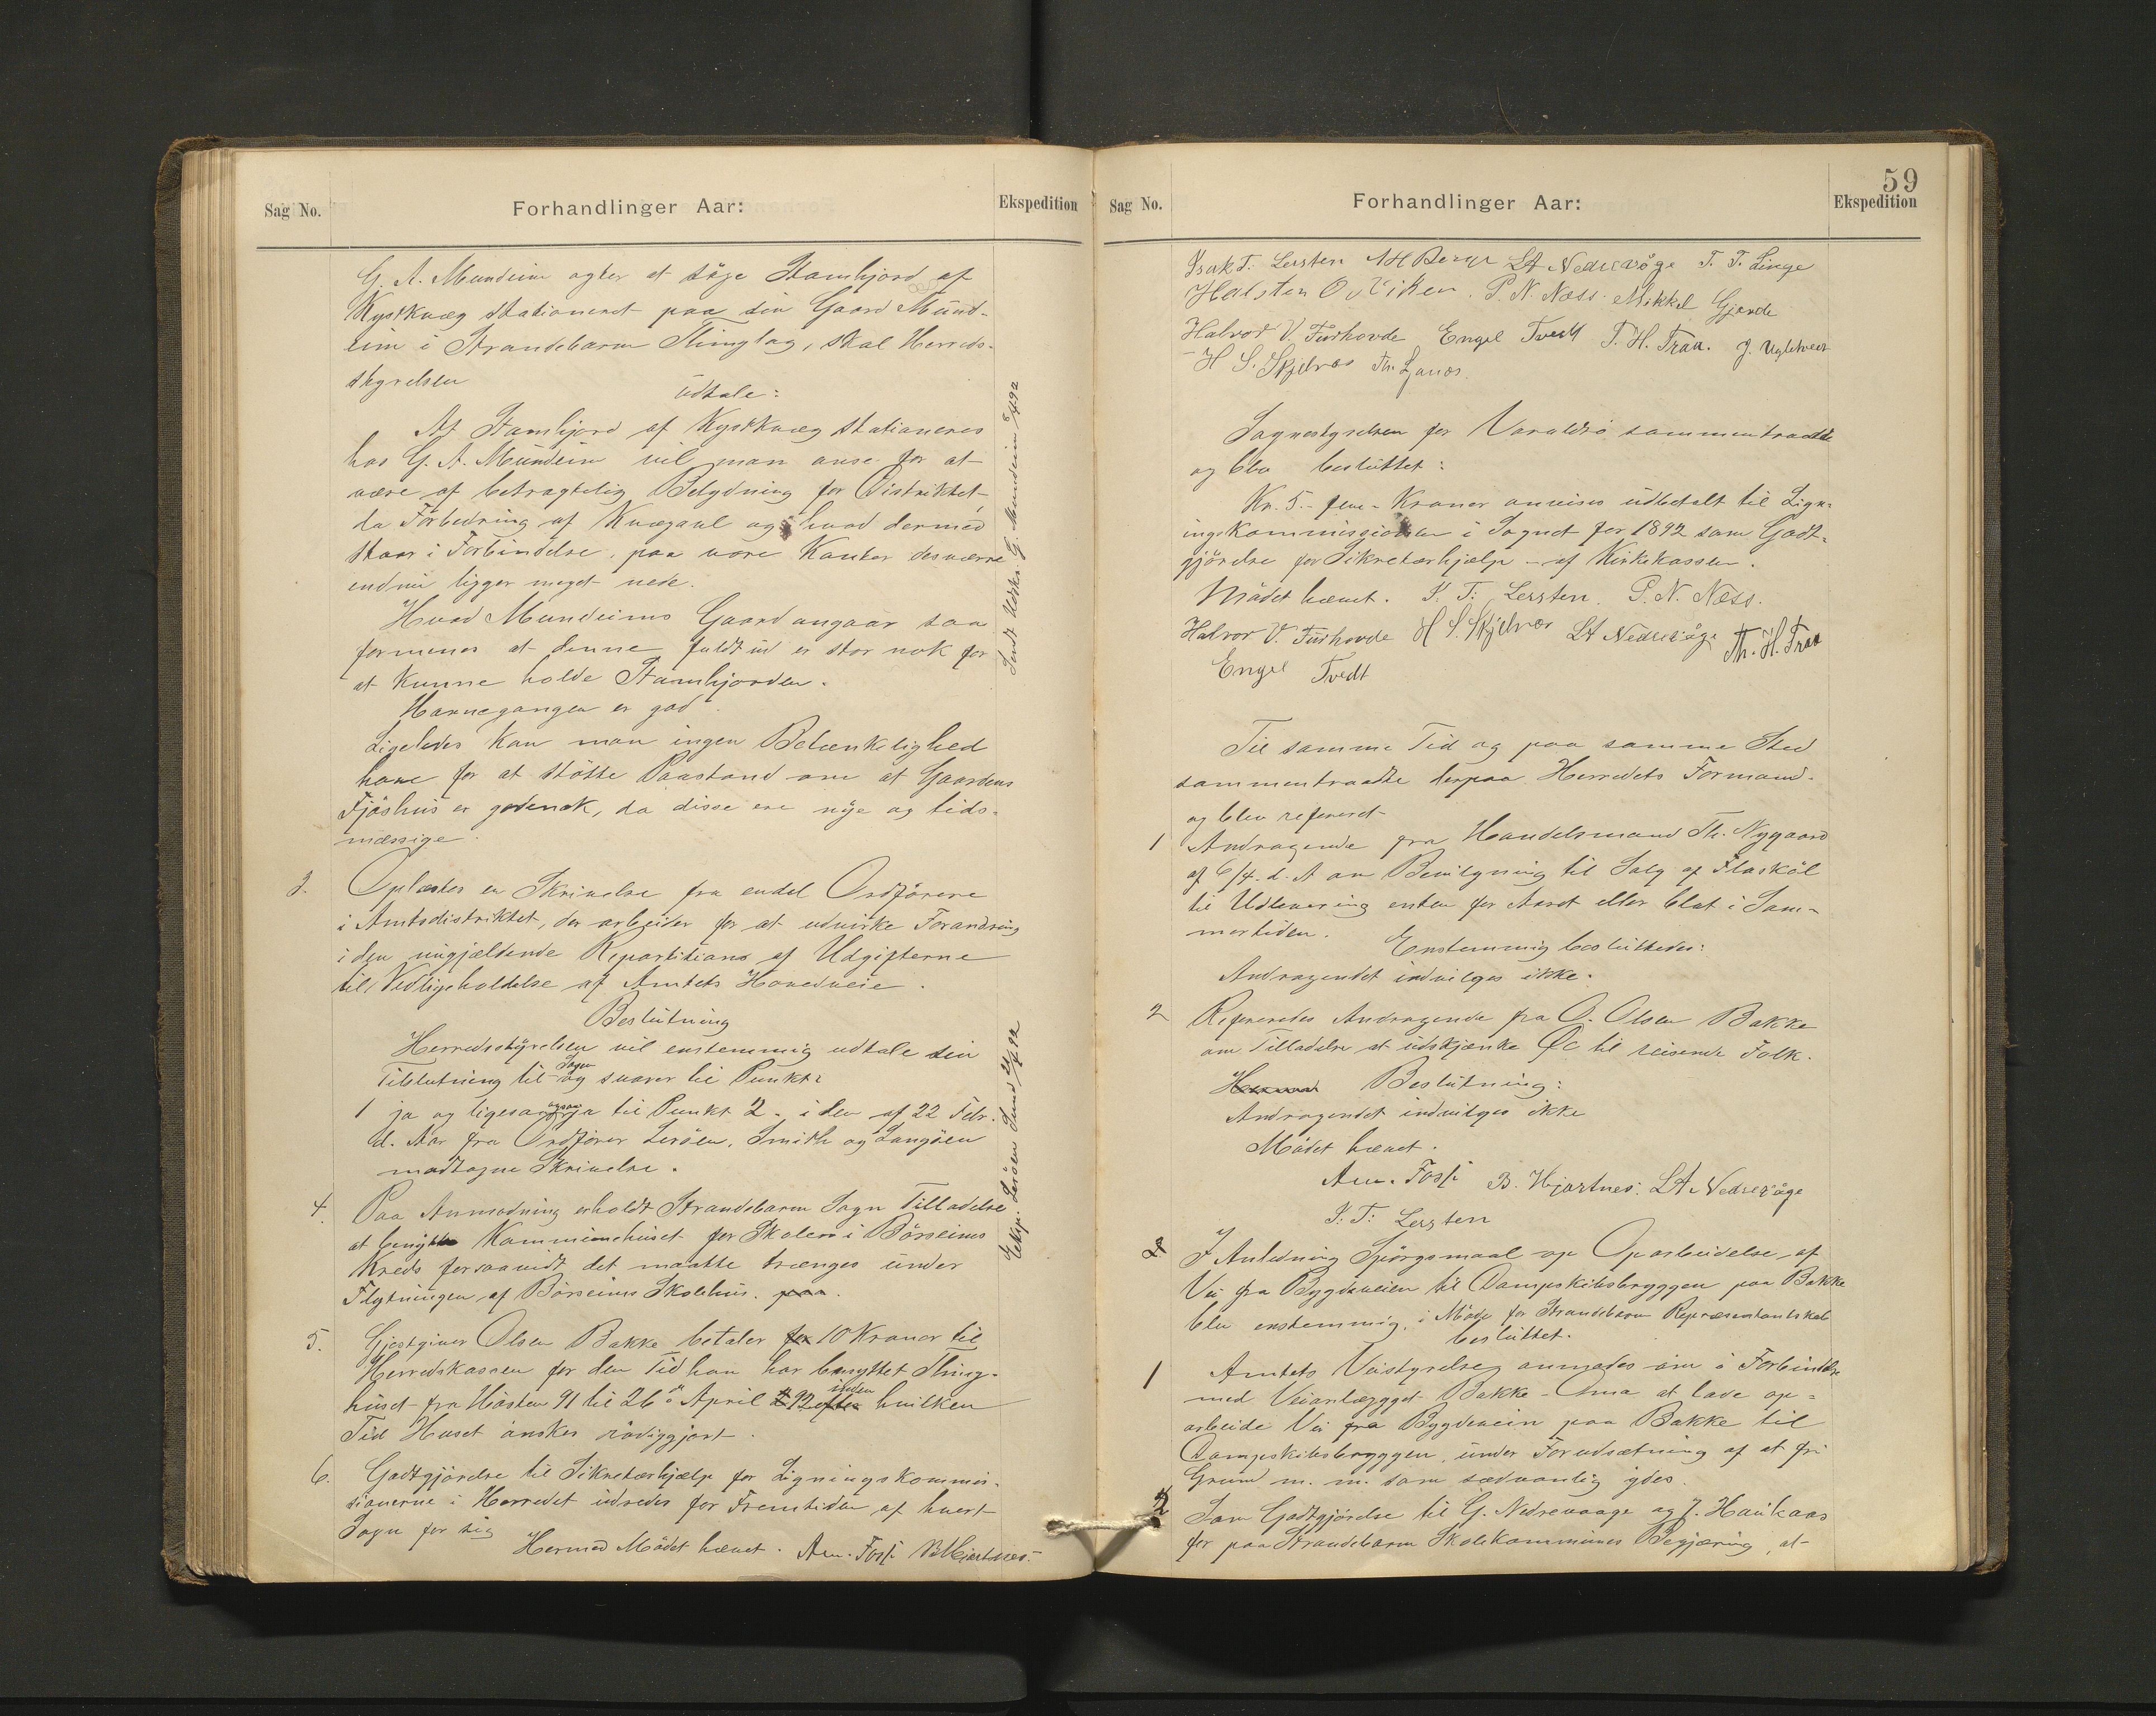 Sag No.
Forhandlinger Aar:
Ekspedition
G. A. Mundeim agter at söge Stamhjord af
Kystkvæg stationeret paa sin Gaard Mund-
eim i Strandebarm Thinglag, skal Herreds-
styrelsen
udtale:
At Stamhjord af Kystkvæg stationeres
hos G. A. Mundeim vil man anse for at
være af betragtelig Betydning for Distriktet
da Forbedring af Kvægavl og hvad dermed
staar i Forbindelse, paa vore Kanter desværre
endnu ligger meget nede.
Hvad Mundeims Gaard angaar saa
formenes at denne fuldt ud er stor nok for
at kunne holde Stamhjorden.
Havnegangen er god.
Ligeledes kan man ingen Betænkelighed
have for at støtte Paastand om at Gaardens
Fjöshus er godenok, da disse ere nye og tids-
mæssige.
Sendt Udskr. G. Mundeim 92
3. Oplæstes en Skrivelse fra endel Ordförere
i Amtsdistriktet, der arbeider for at udvirke Forandring
i den nugjældende Repartitions af Udgifterne
til Vedligeholdelse af Amtets Hovedveie.
Beslutning
Herredsstyrelsen vil enstemmig udtale sin
Tilslutning til og svarer til Punkt
1 ja og ligesaa ogsaa ja til Punkt 2 - i den af 22 Febr.
d. Aar fra Ordförer Leröen, Smith og Langöen
modtagne Skrivelse.
Eksp. Leröen Sund 92
4. Paa Anmodning erholdt Strandebarm Sogn Tilladelse
at benytte Kommunehuset for Skolen i Börseims
Kreds forsaavidt det maatte trænges under
Flytningen af Börseims Skolehus.
5. Gjestgiver Olsen Bakke betaler 10 Kroner til
Herredskassen for den Tid han har benyttet Thing-
huset fra Hösten 91 til 26 April 92 inden hvilken
Tid Huset önskes rödiggjort.
6. Godtgjörelse til Sikretærhjælp for Ligningskommis-
sionerne i Herredet udredes for Fremtiden af hvert
Sogn for sig
Hermed Mödet hævet. Am. Foss B Hjartnes.
59
Sag No.
Forhandlinger Aar:
Ekspedition
Isak T. Lersten A H Berge LA Nedrevöge T. T. Linge
Halsten O Viken. P. N. Næss. Mikkel Gjerde
Halvor V. Furhovde Engel Tvedt T. H. Traa. J. Uglehvedt
H S. Skjelnes Th. Ljanes.
Sognestyrelsen for Varaldsö sammentraadte
og blev besluttet:
Kr. 5.- fem - Kroner anvises udbetalt til Lign-
ingskommissionen i Sognet for 1892 som Godt-
gjörelse for Sikretærhjælp - af Kirkekassen.
Mödet hævet. I. T. Lersten. P. N. Næss.
Halvor V. Furhovde H S. Skjelnes LA Nedrevöge Th. H. Traa
Engel Tvedt
Til samme Tid og paa samme Sted
sammentraadte derpaa Herredets Formand-
og blev refereret
1 Andragende fra Handelsmand Th. Nygaard
af 6/4. d. A om Bevilgning til Salg af Flasköl
til Udlevering enten for Aaret eller blot i Som-
mertiden. Enstemmig besluttedes:
Andragendet indvilges ikke.
2 Refereredes Andragende fra O. Olsen Bakke
om Tilladelse at udskjænke Öl til reisende Folk.
Beslutning:
Andragendet indvilges ikke
Mödet hævet.
Am. Foss B. Hjartnes. LA Nedrevöge
I. T. Lersten
I Anledning Spörgsmaal op Oparbeidelse af
Vei fra Bygdeveien til Dampskibsbryggen paa Bakke
blev enstemmig, i Möde for Strandebarm Repræsentantskab
besluttet.
1 Amtets Veistyrelse anmodes om i Forbindelse
med Veianlægget Bakke - Oma at lave op-
arbeide Vei fra Bygdevein paa Bakke til
Dampskibsbryggen, under Forudsætning af at fri
Grund m. m. som sædvanlig ydes.
2 Som Godtgjörelse til G. Nedrevaage og J. Haukaas
for paa Strandebarm Skolekommunes Begjæring, at